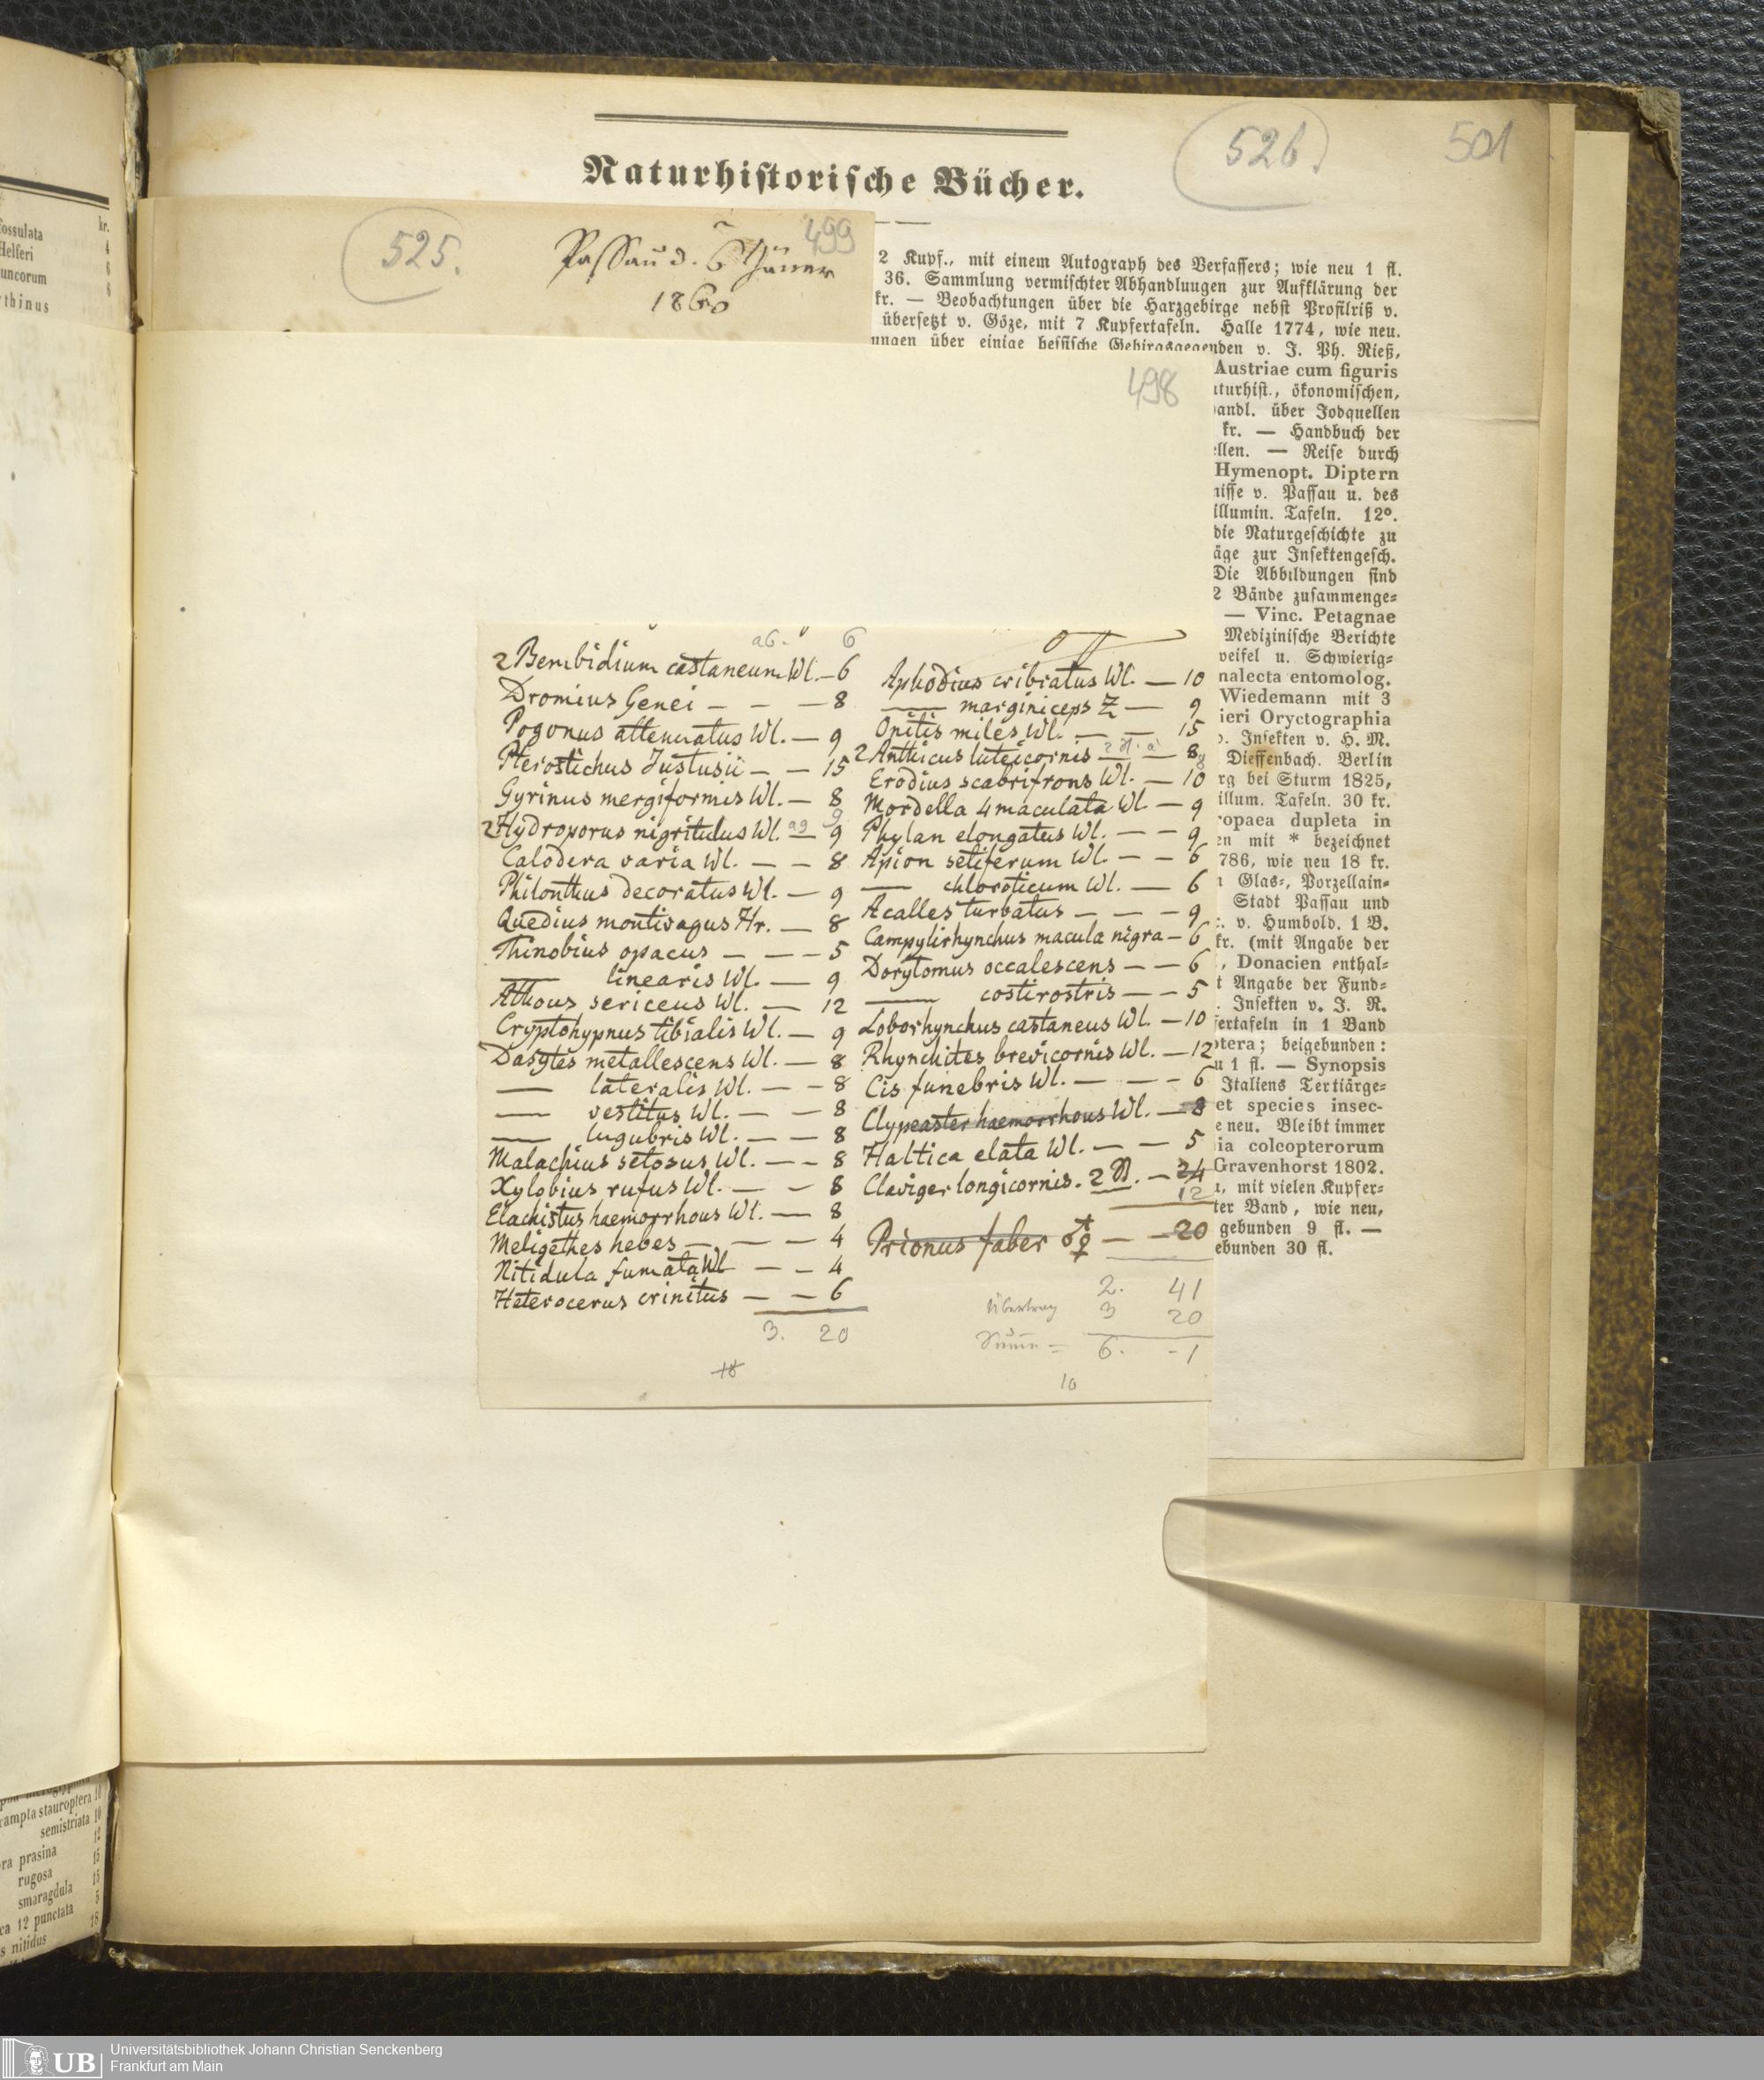 Naturhistorische Bücher.
526.
501
525.
499
Passau d. 6 Jäner
1860
2 Kupf., mit einem Autograph des Verfassers; wie neu 1 fl.
36. Sammlung vermischter Abhandluugen zur Aufklärung der
kr. — Beobachtungen über die Harzgebirge nebst Profilriß v.
übersetzt v. Göze, mit 7 Kupfertafeln. Halle 1774, wie neu.
ungen über einige hessische Gebirgsgegenden v. J. Ph. Rieß,
Austriae cum figuris
aturhist., ökonomischen,
handl. über Jodquellen
kr. — Handbuch der
ellen. — Reise durch
Hymenopt. Diptern
nisse v. Passau u. des
illumin. Tafeln. 12°.
die Naturgeschichte zu
äge zur Insektengesch.
Die Abbildungen sind
2 Bände zusammenge=
— Vinc. Petagnae
Medizinische Berichte
weifel u. Schwierig=
nalecta entomolog.
Wiedemann mit 3
ieri Oryctographia
. Insekten v. H. M.
Dieffenbach. Berlin
rg bei Sturm 1825,
illum. Tafeln. 30 kr.
ropaea dupleta in
en mit * bezeichnet
786, wie neu 18 kr.
Glas=, Porzellain=
Stadt Passau und
v. Humbold. 1 B.
kr. (mit Angabe der
, Donacien enthal=
t Angabe der Fund=
. Insekten v. J. R.
fertafeln in 1 Band
tera; beigebunden:
u 1 fl. — Synopsis
Italiens Tertiärge=
et species insec-
e neu. Bleibt immer
ia colcopterorum
Gravenhorst 1802.
, mit vielen Kupfer=
ter Band, wie neu,
gebunden 9 fl. —
ebunden 30 fl.
498
a6. 6
2 Bembidium castaneum Wl. — 6
Dromius Genei — — — 8
Pogonus attenuatus Wl. — 9
Pterostichus Justusii — — 15
Gyrinus mergiformis Wl. — 8
2 Hydroporus nigritulus Wl. a9 — 9
9
Calodera varia Wl. — — 8
Philonthus decoratus Wl. — 9
Quedius montivagus Hr. — 8
Thinobius opacus — — — 5
—— linearis Wl. — 9
Athous sericeus Wl. — 12
Cryptohypnus tibialis Wl. — 9
Dasytes metallescens Wl. — 8
—— lateralis Wl. — — 8
—— vestitus Wl. — — 8
—— lugubris Wl. — — 8
Malachius setosus Wl. — — 8
Xylobius rufus Wl. — — 8
Elachistus haemorrhous Wl. — 8
Meligethes hebes — — — 4
Nitidula fumata Wl — — 4
Heterocerus crinitus — — 6
3. 20
18
Aphodius cribratus Wl. — 10
—— marginiceps Z — 9
Onitis miles Wl. — — 15
2 Anthicus luteicornis 2 St. a — 8
8
Erodius scabrifrons Wl. — 10
Mordella 4maculata Wl — 9
Phylan elongatus Wl. — — 9
Apion setiferum Wl. — — 6
—— chloroticum Wl. — 6
Acalles turbatus — — — 9
Campylirhynchus macula nigra — 6
Dorytomus occalescens — — 6
—— costirostris — — 5
Loborhynchus castaneus Wl. — 10
Rhynchites brevicornis Wl. — 12
Cis funebris Wl. — — — 6
Clypeaster haemorrhous Wl. — 8
Haltica elata Wl. — — 5
Claviger longicornis. 2 St. — 24
12
Prionus faber ♂♀ — — 20
2. 41
Übertrag 3 20
Summ = 6. - 1
10
kr.
fossulata 4
Helferi 6
uncorum 6
thinus
campta stauroptera 10
semistriata 10
12
ra prasina 15
rugosa 15
smaragdula 5
ca 12 punctata 18
s nitidus
UB
Universitätsbibliothek Johann Christian Senckenberg
Frankfurt am Main